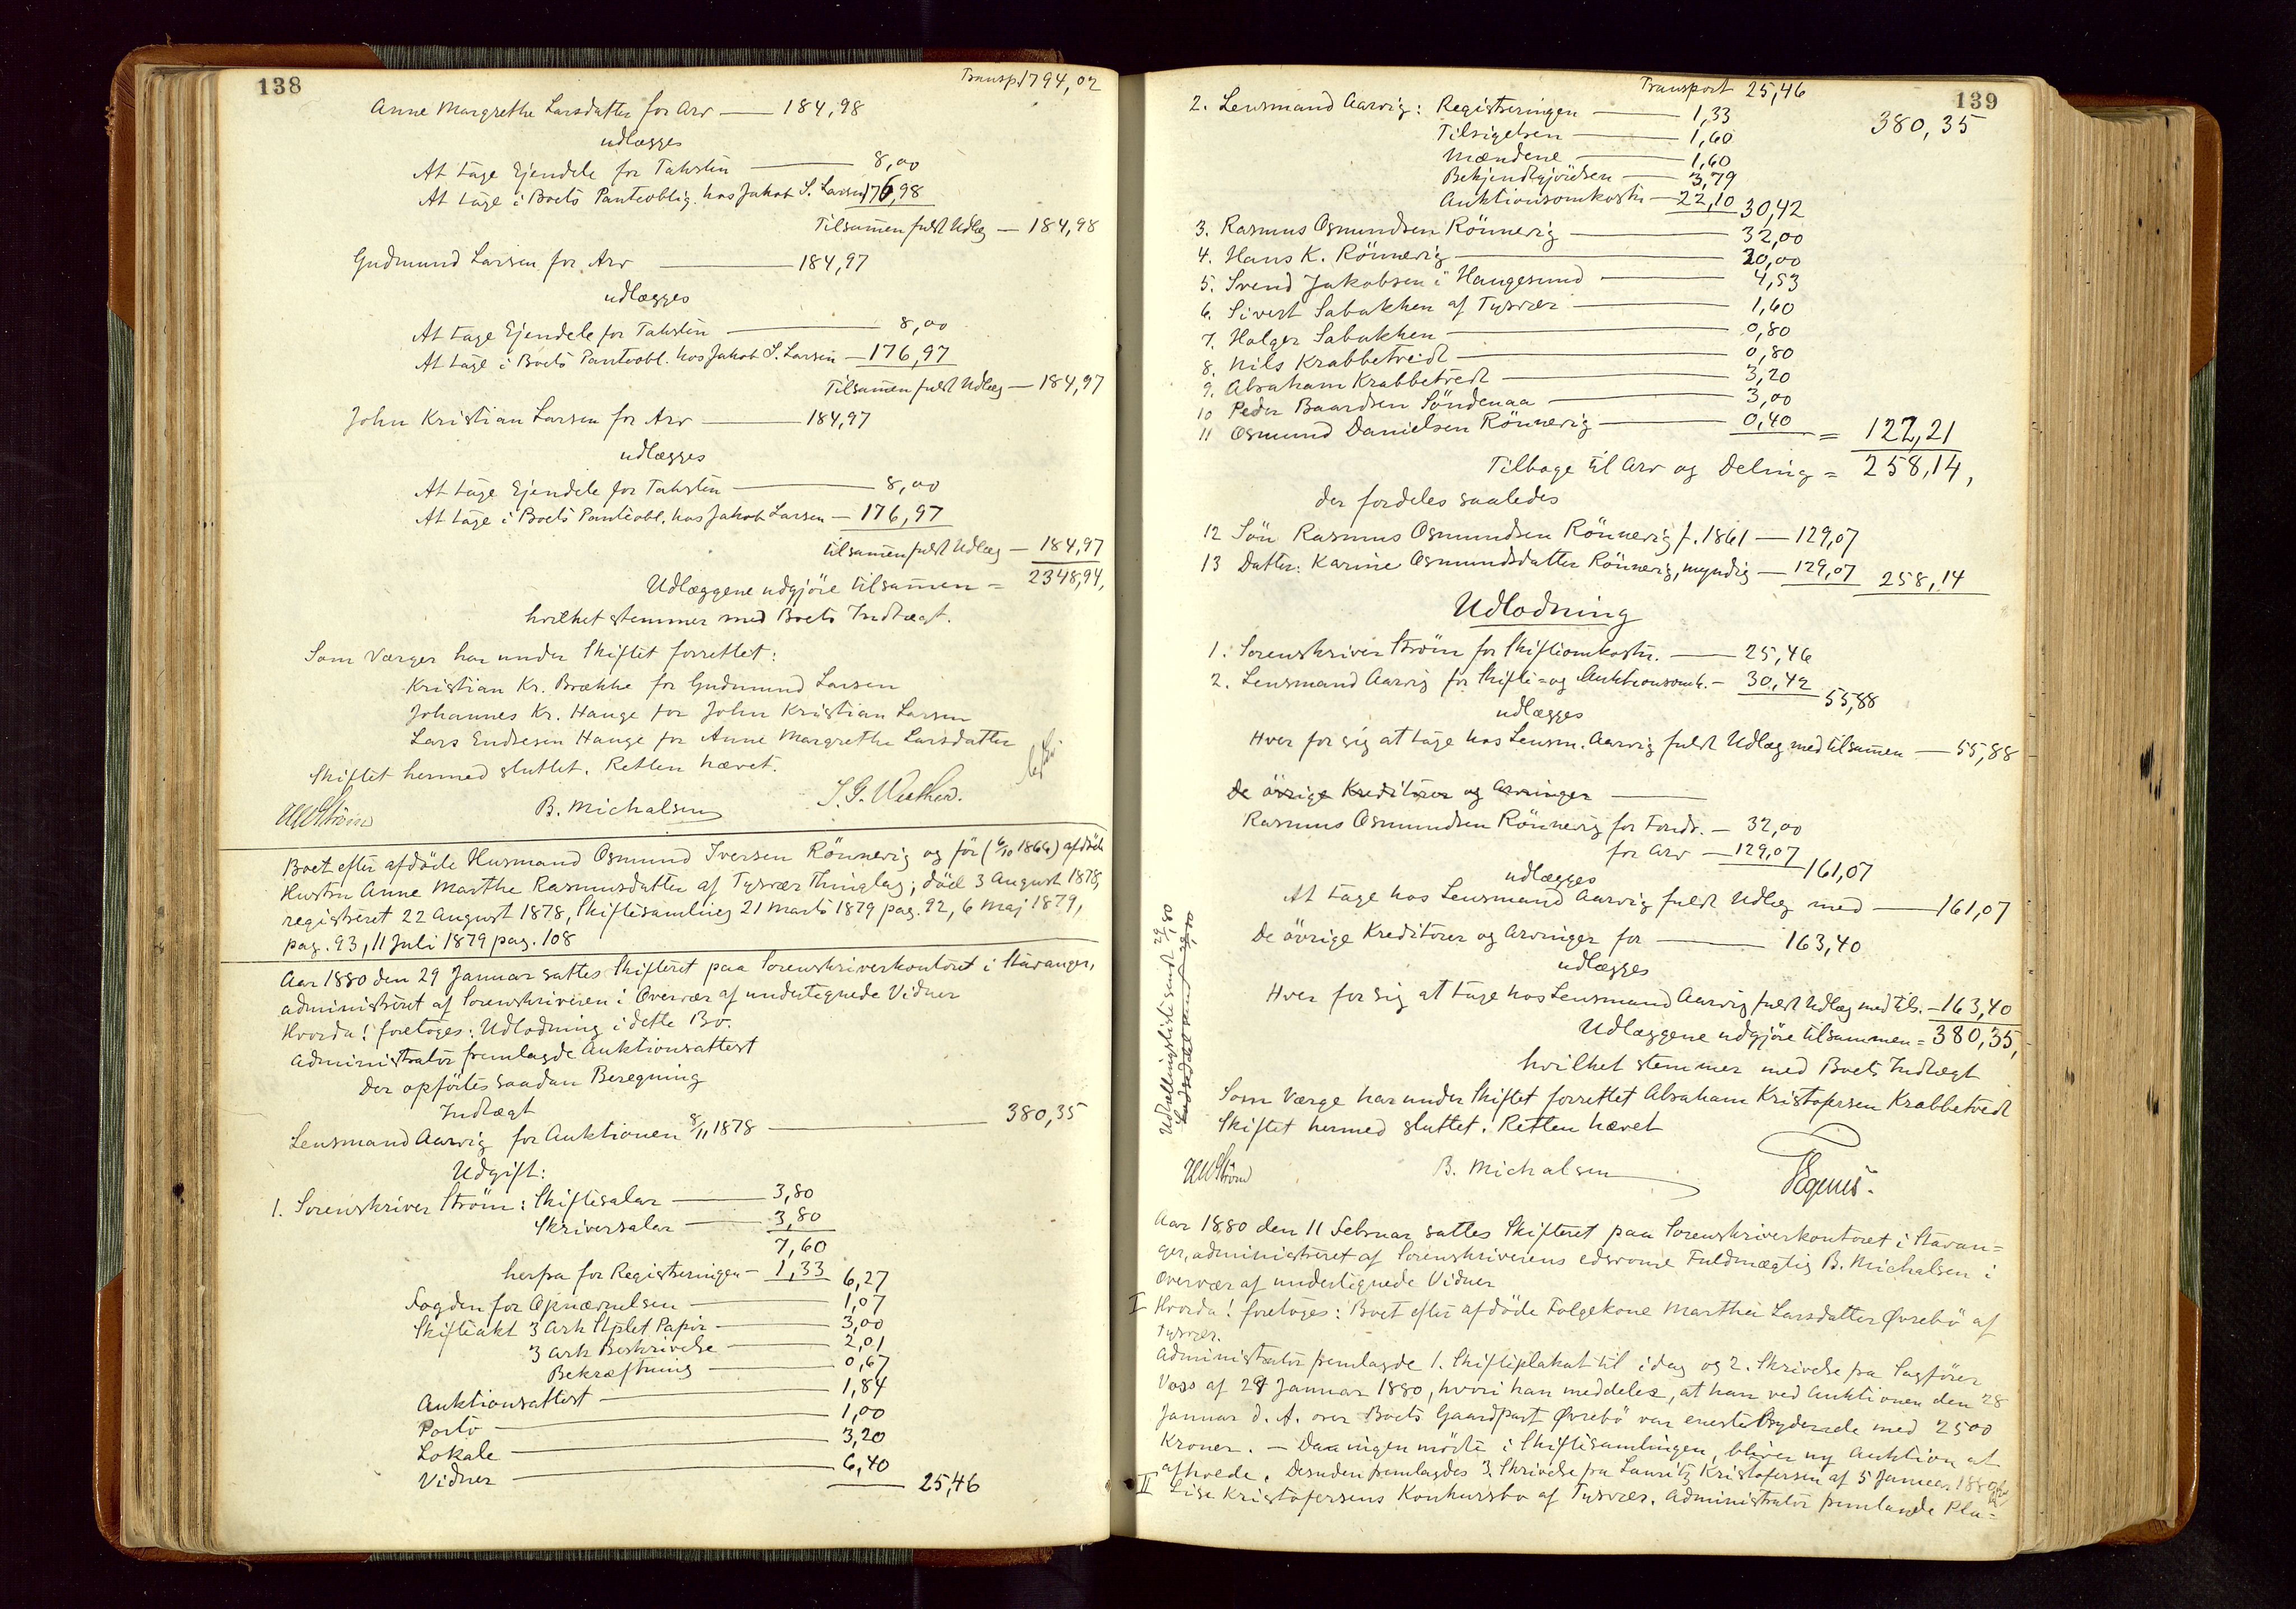 138
Transp. 1794,02
Anne Margrethe Larsdatter for Arv — 184,98
udlægges
At tage Ejendele for Taksten — 8,00
At tage i Boets Panteoblig. hos Jakob S. Larsen 176,98
Tilsamen fuldt Udlæg — 184,98
Gudmund Larsen for Arv — 184,97
udlægges
At tage Ejendele for Taksten — 8,00
At tage i Boets Panteobl. hos Jakob S. Larsen — 176,97
Tilsamen fuldt Udlæg — 184,97
John Kristian Larsen for Arv — 184,97
udlægges
At tage Ejendele for Taksten — 8,00
At tage i Boets Panteobl. hos Jakob Larsen — 176,97
tilsamen fuldt Udlæg — 184,97
Udlæggene udgjöre tilsamen = 2348,94,
hvilket stemmer med Boets Indtægt.
Som Værger har under Skiftet forrettet:
Kristian Kr. Brække for Gudmund Larsen
Johannes Kr. Hauge for John Kristian Larsen
Lars Endresen Hauge for Anne Margrethe Larsdatter
Skiftet hermed sluttet. Retten hævet.
Ström B. Michalsen
Boet efter afdöde Husmand Osmund Iversen Rönnevig og för (6/10 1866) afdöde
Hustru Anne Marthe Rasmusdatter af Tysvær Thinglag; död 3 August 1878,
registreret 22 August 1878, Skiftesamling 21 Marts 1879 pag. 92, 6 Maj 1879,
pag. 93, 11 Juli 1879 pag. 108
Aar 1880 den 29 Januar sattes Skifteret paa Sorenskriverkontoret i Stavanger,
administreret af Sorenskriveren i Overvær af undertegnede Vidner
Hvorda! foretoges: Udlodning i dette Bo.
Administrator fremlagde Auktionsattest
Der opförtes saadan Beregning
Indtægt
Lensmand Aarvig for Auktionen 8/11 1878 — 380,35
Udgift:
1. Sorenskriver Ström: Skiftesalær — 3,80
Skriversalær — 3,80
7,60
herfra for Registreringen — 1,33 6,27
Fogden for Opnævnelsen — 1,07
Skifteakt 3 Ark Stplet Papir — 3,00
3 Ark Beskrivelse — 2,01
Bekræftning — 0,67
Auktionsattest — 1,84
Porto — 1,00
Lokale — 3,20
Vidner — 6,40
25,46
139
Transport 25,46
380,35
2. Lensmand Aarvig: Registreringen — 1,33
Tilsigelsen — 1,60
Mændene — 1,60
Bekjendtgjörelsen — 3,79
Auktionsomkostn — 22,10 30,42
3. Rasmus Osmundsen Rönnevig — 32,00
4. Hans K. Rönnevig — 20,00
5. Svend Jakobsen i Haugesund — 4,53
6. Sivert Sabakken af Tysvær — 1,60
7. Holger Sabakken — 0,80
8. Nils Krabbetveidt — 0,80
9. Abraham Krabbetvedt — 3,20
10 Peder Baardsen Söndenaa — 3,00
11 Osmund Danielsen Rönnevig — 0,40 = 122,21
Tilbage til Arv og Deling = 258,14,
der fordeles saaledes
12 Sön Rasmus Osmundsen Rönnevig f. 1861 — 129,07
13 Datter: Karine Osmundsdatter Rönnevig, myndig — 129,07 258,14
Udlodning
1. Sorenskriver Ström for Skifteomkostn. — 25,46
2. Lensmand Aarvig for Skifte= og Auktionsomk. — 30,42 55,88
udlægges
Hver for sig at tage hos Lensm. Aarvig fuldt Udlæg med tilsamen — 55,88
De övrige Kreditorer og Arvinger —
Rasmus Osmundsen Rönnevig for Fordr. — 32,00
for Arv — 129,07 161,07
udlægges
At tage hos Lensmand Aarvig fuldt Udlæg med — 161,07
De övrige Kreditorer og Arvinger for — 163,40
udlægges
Hver for sig at tage hos Lensmand Aarvig fuldt Udlæg med tils. — 163,40
Udlæggene udgjöre tilsammen = 380,35,
hvilket stemmer med Boets Indtægt
Som Værge har under Skiftet forrettet Abraham Kristofersen Krabbetvedt
Skiftet hermed sluttet. Retten hævet
Ström B. Michalsen
Aar 1880 den 11 Februar sattes Skifteret paa Sorenskriverkontoret i Stavan=
ger, administreret af Sorenskriverens edsvorne Fuldmægtig B. Michalsen i
Overvær af undertegnede Vidner
I Hvorda! foretoges: Boet efter afdöde Folgekone Martha Larsdatter Øvrebö af
Tysvær.
Administrator fremlagde 1. Skifteplakat til idag og 2. Skrivelse fra Sagförer
Voss af 29 Januar 1880, hvori han meddeles, at han ved Auktionen den 28
Januar d. A. over Boets Gaardpart Øvrebö var eneste bydende med 2500
Kroner. — Da ingen mödte i Skiftesamlingen, bliver ny Auktion at
afholde. Desuden fremlagdes 3. Skrivelse fra Lauritz Kristofersen af 5 Januar 1880
II Lise Kristofersens Konkursbo af Tysvær. Administrator fremlagde Pla=